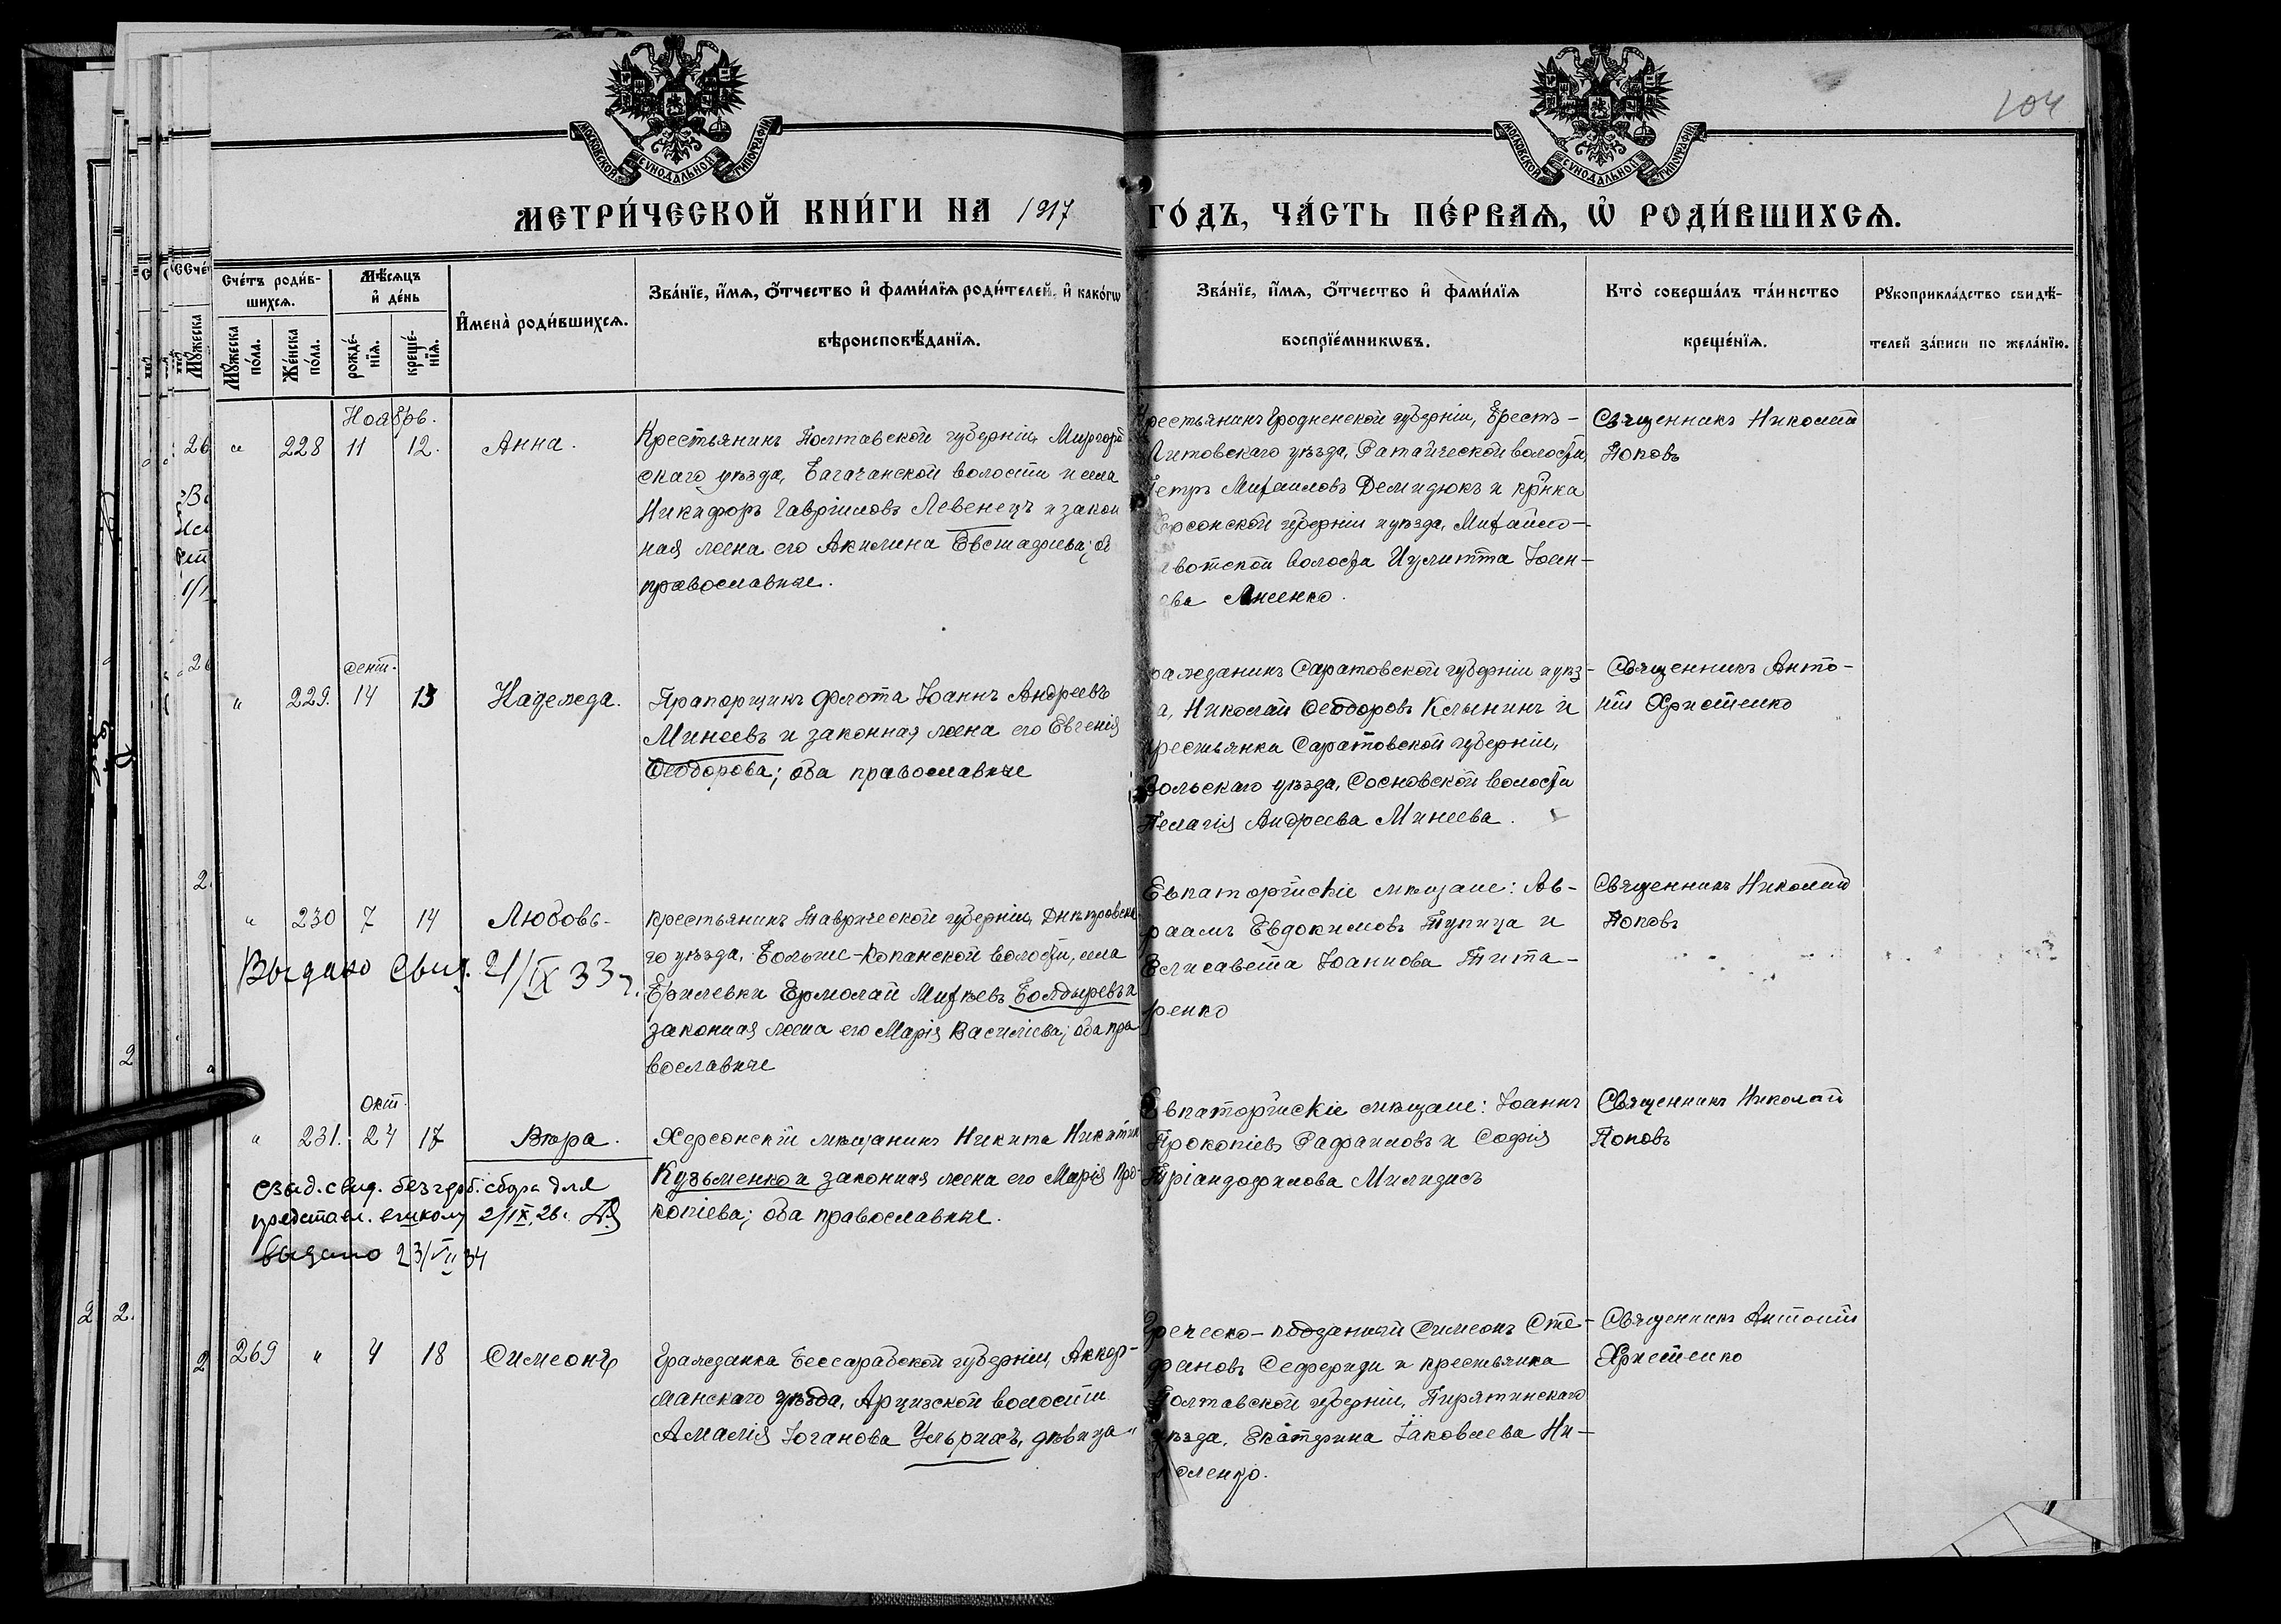 104
МОСКОВСКОЙ СѴНОДАЛЬНОЙ ТИПОГРАФІИ
МОСКОВСКОЙ СѴНОДАЛЬНОЙ ТИПОГРАФІИ
МЕТРИ́ЧЕСКОЙ КНИ́ГИ НА 1917 ГО́ДЪ, ЧА́СТЬ ПЕ́РВАѦ, Ѡ҆ РОДИ́ВШИХСѦ.
Сче́тъ роди́в-
шихсѧ.
Мꙋ́жеска
по́ла.
Же́нска
по́ла.
Мѣ́сѧцъ
и҆ де́нь
рожде́-
нїѧ.
креще́-
нїѧ.
И҆мена̀ роди́вшихсѧ.
Зва́нїе, и҆́мѧ, ѻ҆́тчество и҆ фами́лїѧ роди́телей, и҆ како́гѡ
вѣроисповѣ́данїѧ.
Зва́нїе, и҆́мѧ, ѻ҆́тчество и҆ фами́лїѧ
воспрїе́мникѡвъ.
Кто̀ соверша́лъ та́инство
креще́нїѧ.
Рꙋкоприкла́дство свидѣ́-
телей за́писи по жела́нїю.
Ноябрь.
" 228 11 12. Анна.
Крестьянинъ Полтавской губерніи, Миргород
скаго уѣзда, Багачанской волости и села
Никифоръ Гавріиловъ Левенецъ и закон
ная жена его Акилина Евстафіева; об
православные.
Крестьянинъ Гродненской губерніи, Брестъ-
Литовскаго уѣзда, Ратайческой волости,
Петръ Михаиловъ Демидюкъ и кр-нка
Херсонской губерніи и уѣзда, Михайло-
волости Иулитта Іоан-
ова
Священникъ Николай
Поповъ
сент.
" 229. 14 13 Надежда.
Прапорщикъ флота Іоаннъ Андреевъ
Минеевъ и законная жена его Евгенія
Ѳеодорова; оба православные
Гражданинъ Саратовской губерніи и уѣз-
да, Николай Ѳеодоровъ и
крестьянка Саратовской губерніи,
Вольскаго уѣзда, Сосновской волости
Пелагія Андреева Минеева.
Священникъ Анто-
ній Христенко
" 230 7 14 Любовь.
Крестьянинъ Таврической губерніи, Днѣпровска
го уѣзда, Больше-Копанской волости, села
Ермолай Михѣевъ Болдыревъ и
законная жена его Марія Василіева; оба пра
вославные
Выдано свид. 21/IX 33 г.
Евпаторійскіе мѣщане: Ав-
раамъ Евдокимовъ Тупица и
Елисавета Іоаннова Тита-
ренко
Священникъ Николай
Поповъ
окт.
" 231. 24 17 Вѣра.
Херсонскій мѣщанинъ Никита Никитин
Кузьменко и законная жена его Марія Про-
копіева; оба православные.
выд. свид. без герб. сбора для
представл. в школу 2/IX, 26.
выдано 23/VII 34
Евпаторійскіе мѣщане: Іоаннъ
Прокопіевъ Рафаиловъ и Софія
Тріандофилова Милидисъ
Священникъ Николай
Поповъ
269 " 4 18 Симеонъ
Гражданка Бессарабской губерніи, Аккер-
манскаго уѣзда, Арцизской волости
Амалія Іоганова Ульрихъ, дѣвица
Греческо-подданный Симеонъ Сте-
фановъ Сефериди и крестьянка
Полтавской губерніи, Пирятинскаго
уѣзда, Екатерина Іаковлева Ни-
коленко.
Священникъ Антоній
Христенко